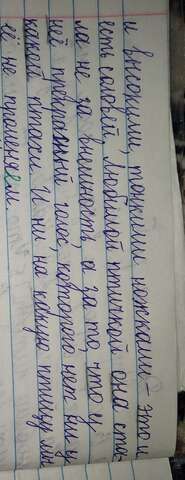 и высокими, тонкими ножками – это и
есть соловей. Любимой птичкой она ста-
ла не за внешность, а за то, что у
неё прекрасный голос, которого нет ни у
какой птахи. И ни на какую птицу мы
её не променяем.